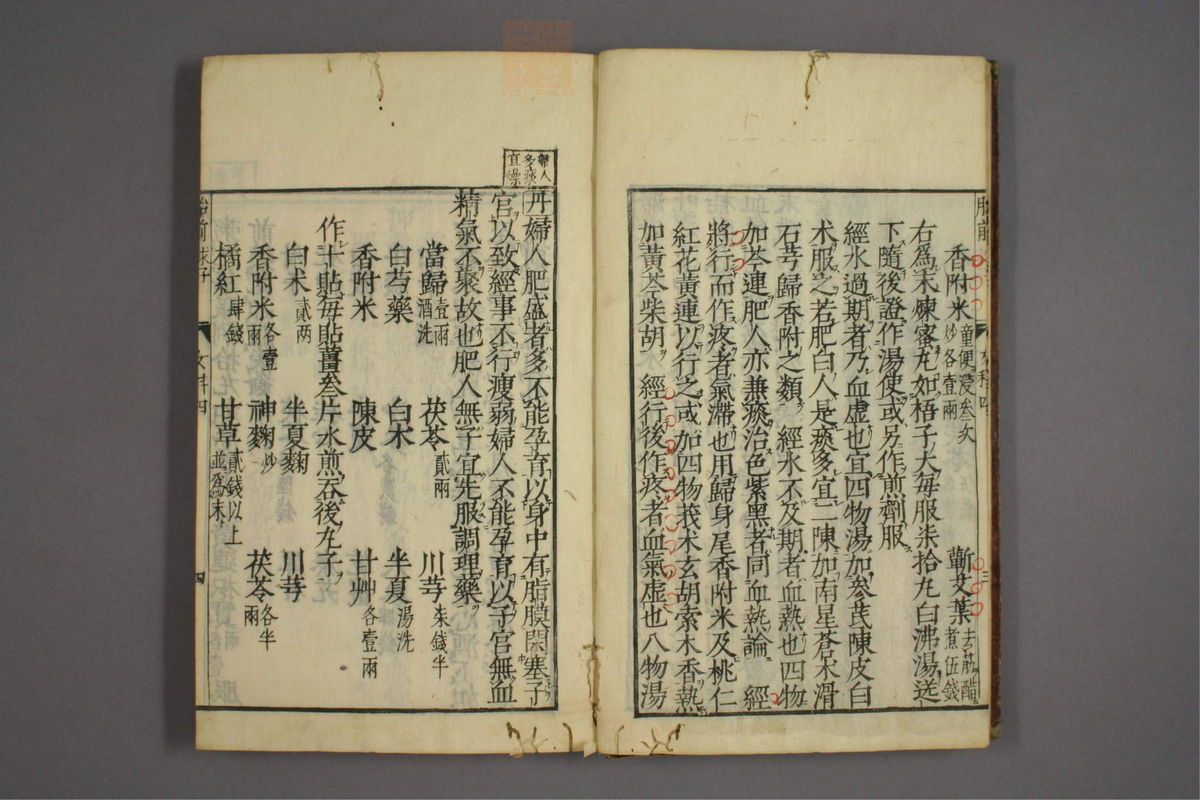 香附米童便浸叁次炒各壹兩 蘄艾葉去筋醋煮伍錢
右爲末煉蜜丸如梧子大每服柒拾丸白沸湯送
下隨後證作湯使或另作煎劑服
經水過期者乃血虛也宜四物湯加參芪陳皮白
术服之若肥白人是痰多宜二陳加南星蒼朮滑
石芎歸香附之類 經水不及期者血熱也四物
加芩連肥人亦兼痰治色紫黑者同血熱論 經
將行而作疼者氣滯也用歸身尾香附米及桃仁
紅花黃連以行之或加四物莪术玄胡索木香熱
加黃芩柴胡 經行後作疼者血氣虛也八物湯
胎前
女科四
三
婦人
多痰
宜燥
丹婦人肥盛者多不能孕育以身中有脂膜閉塞子
宮以致經事不行瘦弱婦人不能孕育以子宮無血
精氣不聚故也肥人無子宜先服調理藥
當歸壹兩酒洗 茯苓貳兩 川芎柒錢半
白芍藥 白术 半夏湯洗
香附米 陳皮 甘艸各壹兩
作十貼每貼薑叁片水煎吞後丸子
白术貳兩 半夏麴 川芎
香附米各壹兩 神麴炒 茯苓各半兩
橘紅肆錢 甘草貳錢以上並爲末
胎前 求子
女科四
四